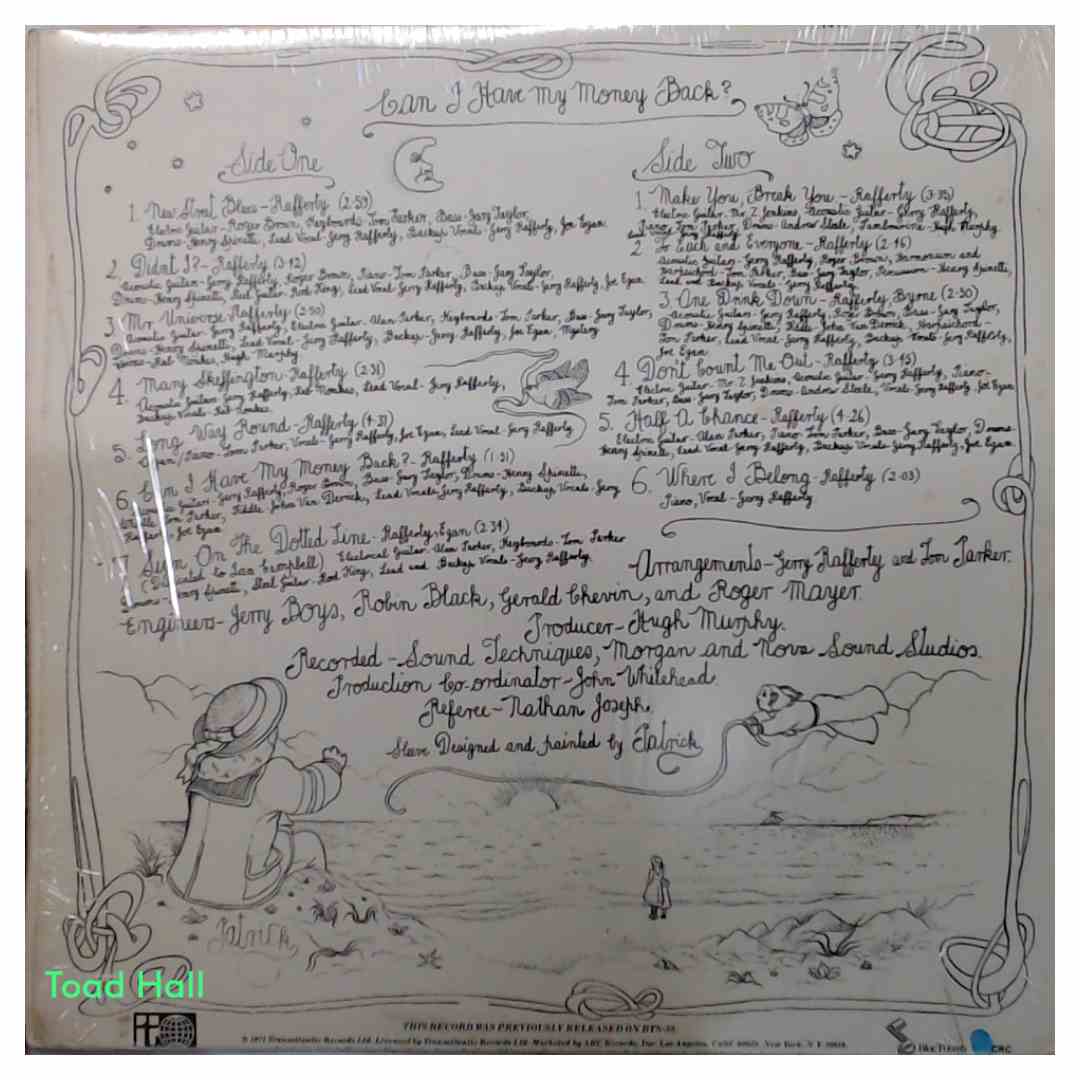 Can I Have my Money Back?
Side One
1. New Street Blues - Rafferty (2:59)
Electric Guitar - Roger Brown, Keyboards - Tom Parker, Bass - Gary Taylor,
Drums - Henry Spinetti, Lead Vocal - Gerry Rafferty, Backup Vocals - Gerry Rafferty, Joe Egan
2. Didn't I? - Rafferty (3:42)
Acoustic Guitars - Gerry Rafferty, Roger Brown, Piano - Tom Parker, Bass - Gary Taylor,
Drums - Henry Spinetti, Steel Guitar - Rod King, Lead Vocal - Gerry Rafferty, Backup Vocals - Gerry Rafferty, Joe Egan
3. Mr. Universe - Rafferty
Acoustic Guitar - Gerry Rafferty, Electric Guitar - Alan Parker, Keyboards - Tom Parker, Bass - Gary Taylor,
Drums - Henry Spinetti, Lead Vocal - Gerry Rafferty, Backup - Gerry Rafferty, Joe Egan, Mystery
Rab Noakes, Hugh Murphy
4. Mary Skeffington - Rafferty (2:31)
Acoustic Guitars - Gerry Rafferty, Rab Noakes, Lead Vocal - Gerry Rafferty,
Backup Vocals - Rab Noakes
5. Long Way Round - Rafferty
Organ/Piano - Tom Parker, Vocals - Gerry Rafferty, Joe Egan, Lead Vocal - Gerry Rafferty
6. Can I Have My Money Back? - Rafferty
Acoustic Guitars - Gerry Rafferty, Roger Brown, Bass - Gary Taylor, Drums - Henry Spinetti,
Tom Parker, Fiddle - John Van Derrick, Lead Vocals - Gerry Rafferty, Backup Vocals - Gerry
Rafferty, Joe Egan
7. Sign On The Dotted Line - Rafferty, Egan (2:34)
(Dedicated to Ian Campbell) Electrical Guitar - Alan Parker, Keyboards - Tom Parker
Drums - Henry Spinetti, Steel Guitar - Rod King, Lead and Backup Vocals - Gerry Rafferty.
Side Two
1. Make You, Break You - Rafferty (3:35)
Electric Guitar - Mr Z Jenkins, Acoustic Guitar - Gerry Rafferty,
Piano Tom Parker, Drums - Andrew Steele, Tambourine - Hugh Murphy
2. To Each and Everyone - Rafferty (2:46)
Acoustic Guitars - Gerry Rafferty, Roger Brown, Harmonium and
Harpsichord - Tom Parker, Bass - Gary Taylor, Percussion - Henry Spinetti,
Lead and Backup Vocals - Gerry Rafferty
3. One Drink Down - Rafferty (2:30)
Acoustic Guitar - Gerry Rafferty, Roger Brown, Bass - Gary Taylor,
Drums - Henry Spinetti, Fiddle - John Van Derrick, Harpsichord -
Tom Parker, Lead Vocal - Gerry Rafferty, Backup Vocals - Gerry Rafferty,
Joe Egan
4. Don't Count Me Out - Rafferty (3:45)
Electric Guitar - Mr Z Jenkins, Acoustic Guitar - Gerry Rafferty, Piano -
Tom Parker, Bass - Gary Taylor, Drums - Andrew Steele, Vocals - Gerry Rafferty, Joe Egan
5. Half A Chance - Rafferty (4:26)
Electric Guitar - Alan Parker, Piano - Tom Parker, Bass - Gary Taylor, Drums -
Henry Spinetti, Lead Vocals - Gerry Rafferty, Backup Vocals Gerry Rafferty, Joe Egan
6. Where I Belong - Rafferty (2:03)
Piano, Vocal - Gerry Rafferty
Arrangements - Gerry Rafferty and Tom Parker.
Engineers - Jerry Boys, Robin Black, Gerald Chevin, and Roger Mayer.
Producer - Hugh Murphy.
Recorded - Sound Techniques, Morgan and Nova Sound Studios.
Production Co-ordinator - John Whitehead.
Referee - Nathan Joseph.
Sleeve Designed and painted by Patrick
Patrick
Toad Hall
THIS RECORD WAS PREVIOUSLY RELEASED ON BTS-58
℗ 1971 Transatlantic Records Ltd. Licensed by Transatlantic Records Ltd. Marketed by ABC Records, Inc. Los Angeles, New York, N.Y.
Blue Thumb
CRC